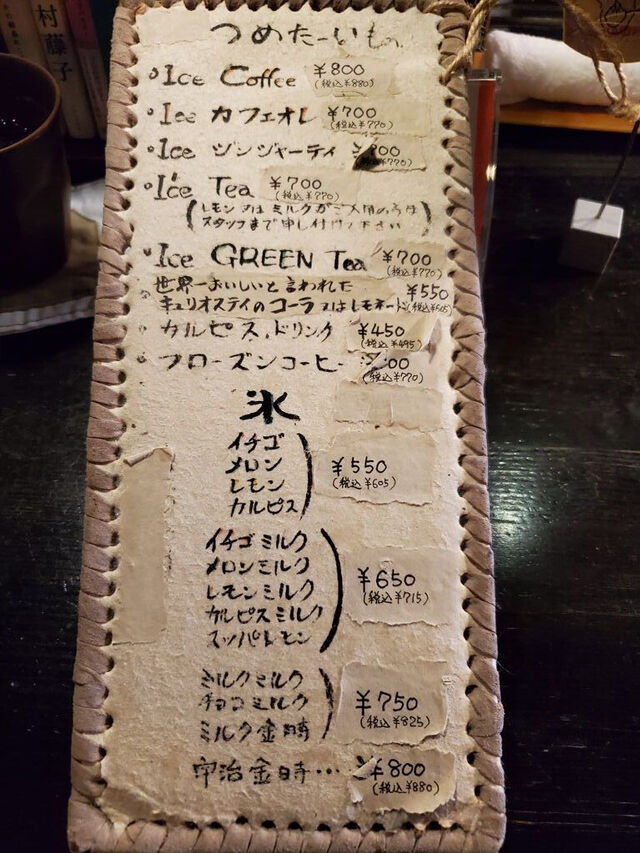 村藤子
つめたーいもの
Ice Coffee ¥800
(税込¥880)
Ice カフェオレ ¥700
(税込¥770)
Ice ジンジャーティ 700
(税込¥770)
Ice Tea ¥700
(税込¥770)
(レモン又はミルクがご入用の方は
スタッフまで申し付け下さい)
Ice GREEN Tea ¥700
(税込¥770)
世界一おいしいと言われた ¥550
キュリオステイのコーラ又はレモネード (税込¥605)
カルピス.ドリンク ¥450
(税込¥495)
フローズンコーヒー 00
(税込¥770)
氷
イチゴ
メロン
レモン
カルピス
¥550
(税込¥605)
イチゴミルク
メロンミルク
レモンミルク
カルピスミルク
スッパレモン
¥650
(税込¥715)
ミルクミルク
チョコミルク
ミルク金時
¥750
(税込¥825)
宇治金時… ¥800
(税込¥880)